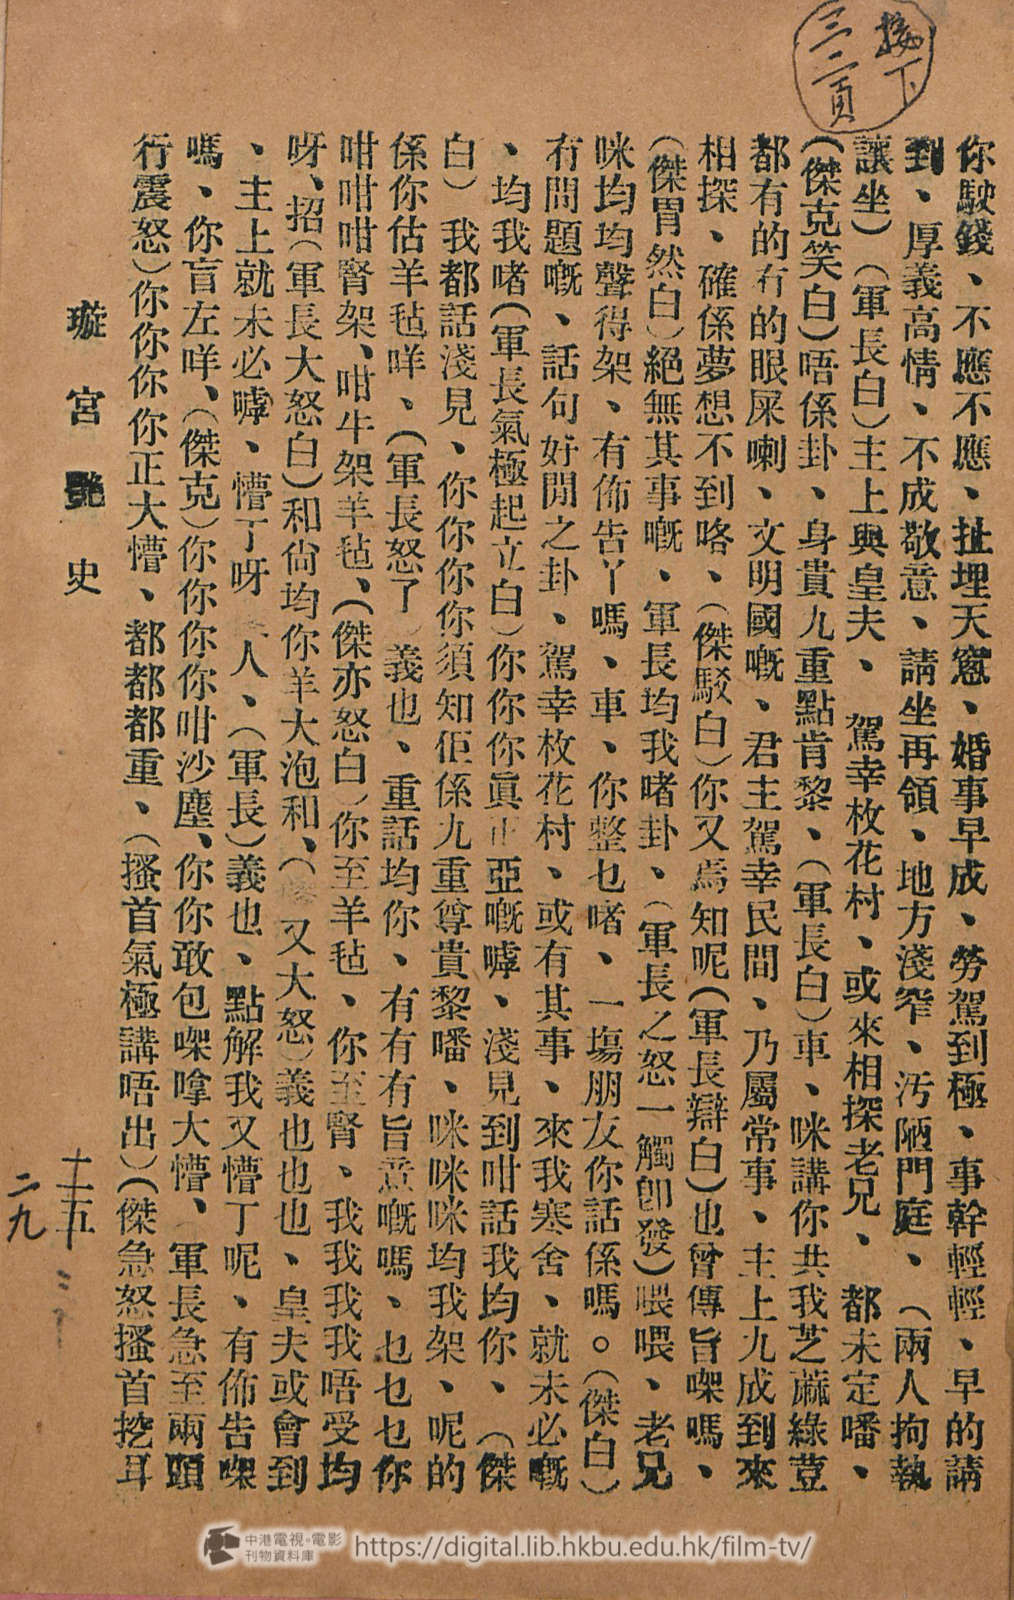 接下
三二頁
你駛錢、不應不應、扯埋天窻、婚事早成、勞駕到極、事幹輕輕、早的請
到、厚義高情、不成敬意、請坐再領、地方淺窄、汚陋門庭、（兩人拘執
讓坐）（軍長白）主上與皇夫、駕幸枚花村、或來相探老兄、都未定噃、
（傑克笑白）唔係卦、身貴九重點肯黎、（軍長白）車、咪講你共我芝蔴綠荳
都有的冇的眼屎喇、文明國嘅、君主駕幸民間、乃屬常事、主上九成到來
相探、確係夢想不到咯、（傑駁白）你又焉知呢（軍長辯白）也曾傳旨㗎嗎、
（傑胃然白）絕無其事嘅、軍長均我啫卦、（軍長之怒一觸卽發）喂喂、老兄
咪均均聲得架、有佈告丫嗎、車、你整乜啫、一塲朋友你話係嗎。（傑白）
冇問題嘅、話句好閒之卦、駕幸枚花村、或有其事、來我寒舍、就未必嘅
、均我啫（軍長氣極起立白）你你你眞正亞嘅嘑、淺見到咁話我均你、（傑
白）我都話淺見、你你你你須知佢係九重尊貴黎噃、咪咪咪均我架、呢的
係你估羊毡咩、（軍長怒了）義也、重話均你、有有有旨意嘅嗎、乜乜乜你
咁咁咁腎架、咁牛架羊毡、（傑亦怒白）你至羊毡、你至腎、我我我我唔受均
呀、招（軍長大怒白）和尙均你羊大泡和、（又大怒）義也也也、皇夫或會到
、主上就未必嘑、懵丁呀人、（軍長）義也、點解我又懵丁呢、有佈告㗎
嗎、你盲左咩、（傑克）你你你你咁沙塵、你你敢包㗎嗱大懵、軍長急至兩頭
行震怒）你你你你正大懵、都都都重、（搔首氣極講唔出）（傑急怒搔首挖耳
璇宮艷史
二五
二九
https://digital.lib.hkbu.edu.hk/film-tv/
中港電視・電影
刊物資料庫